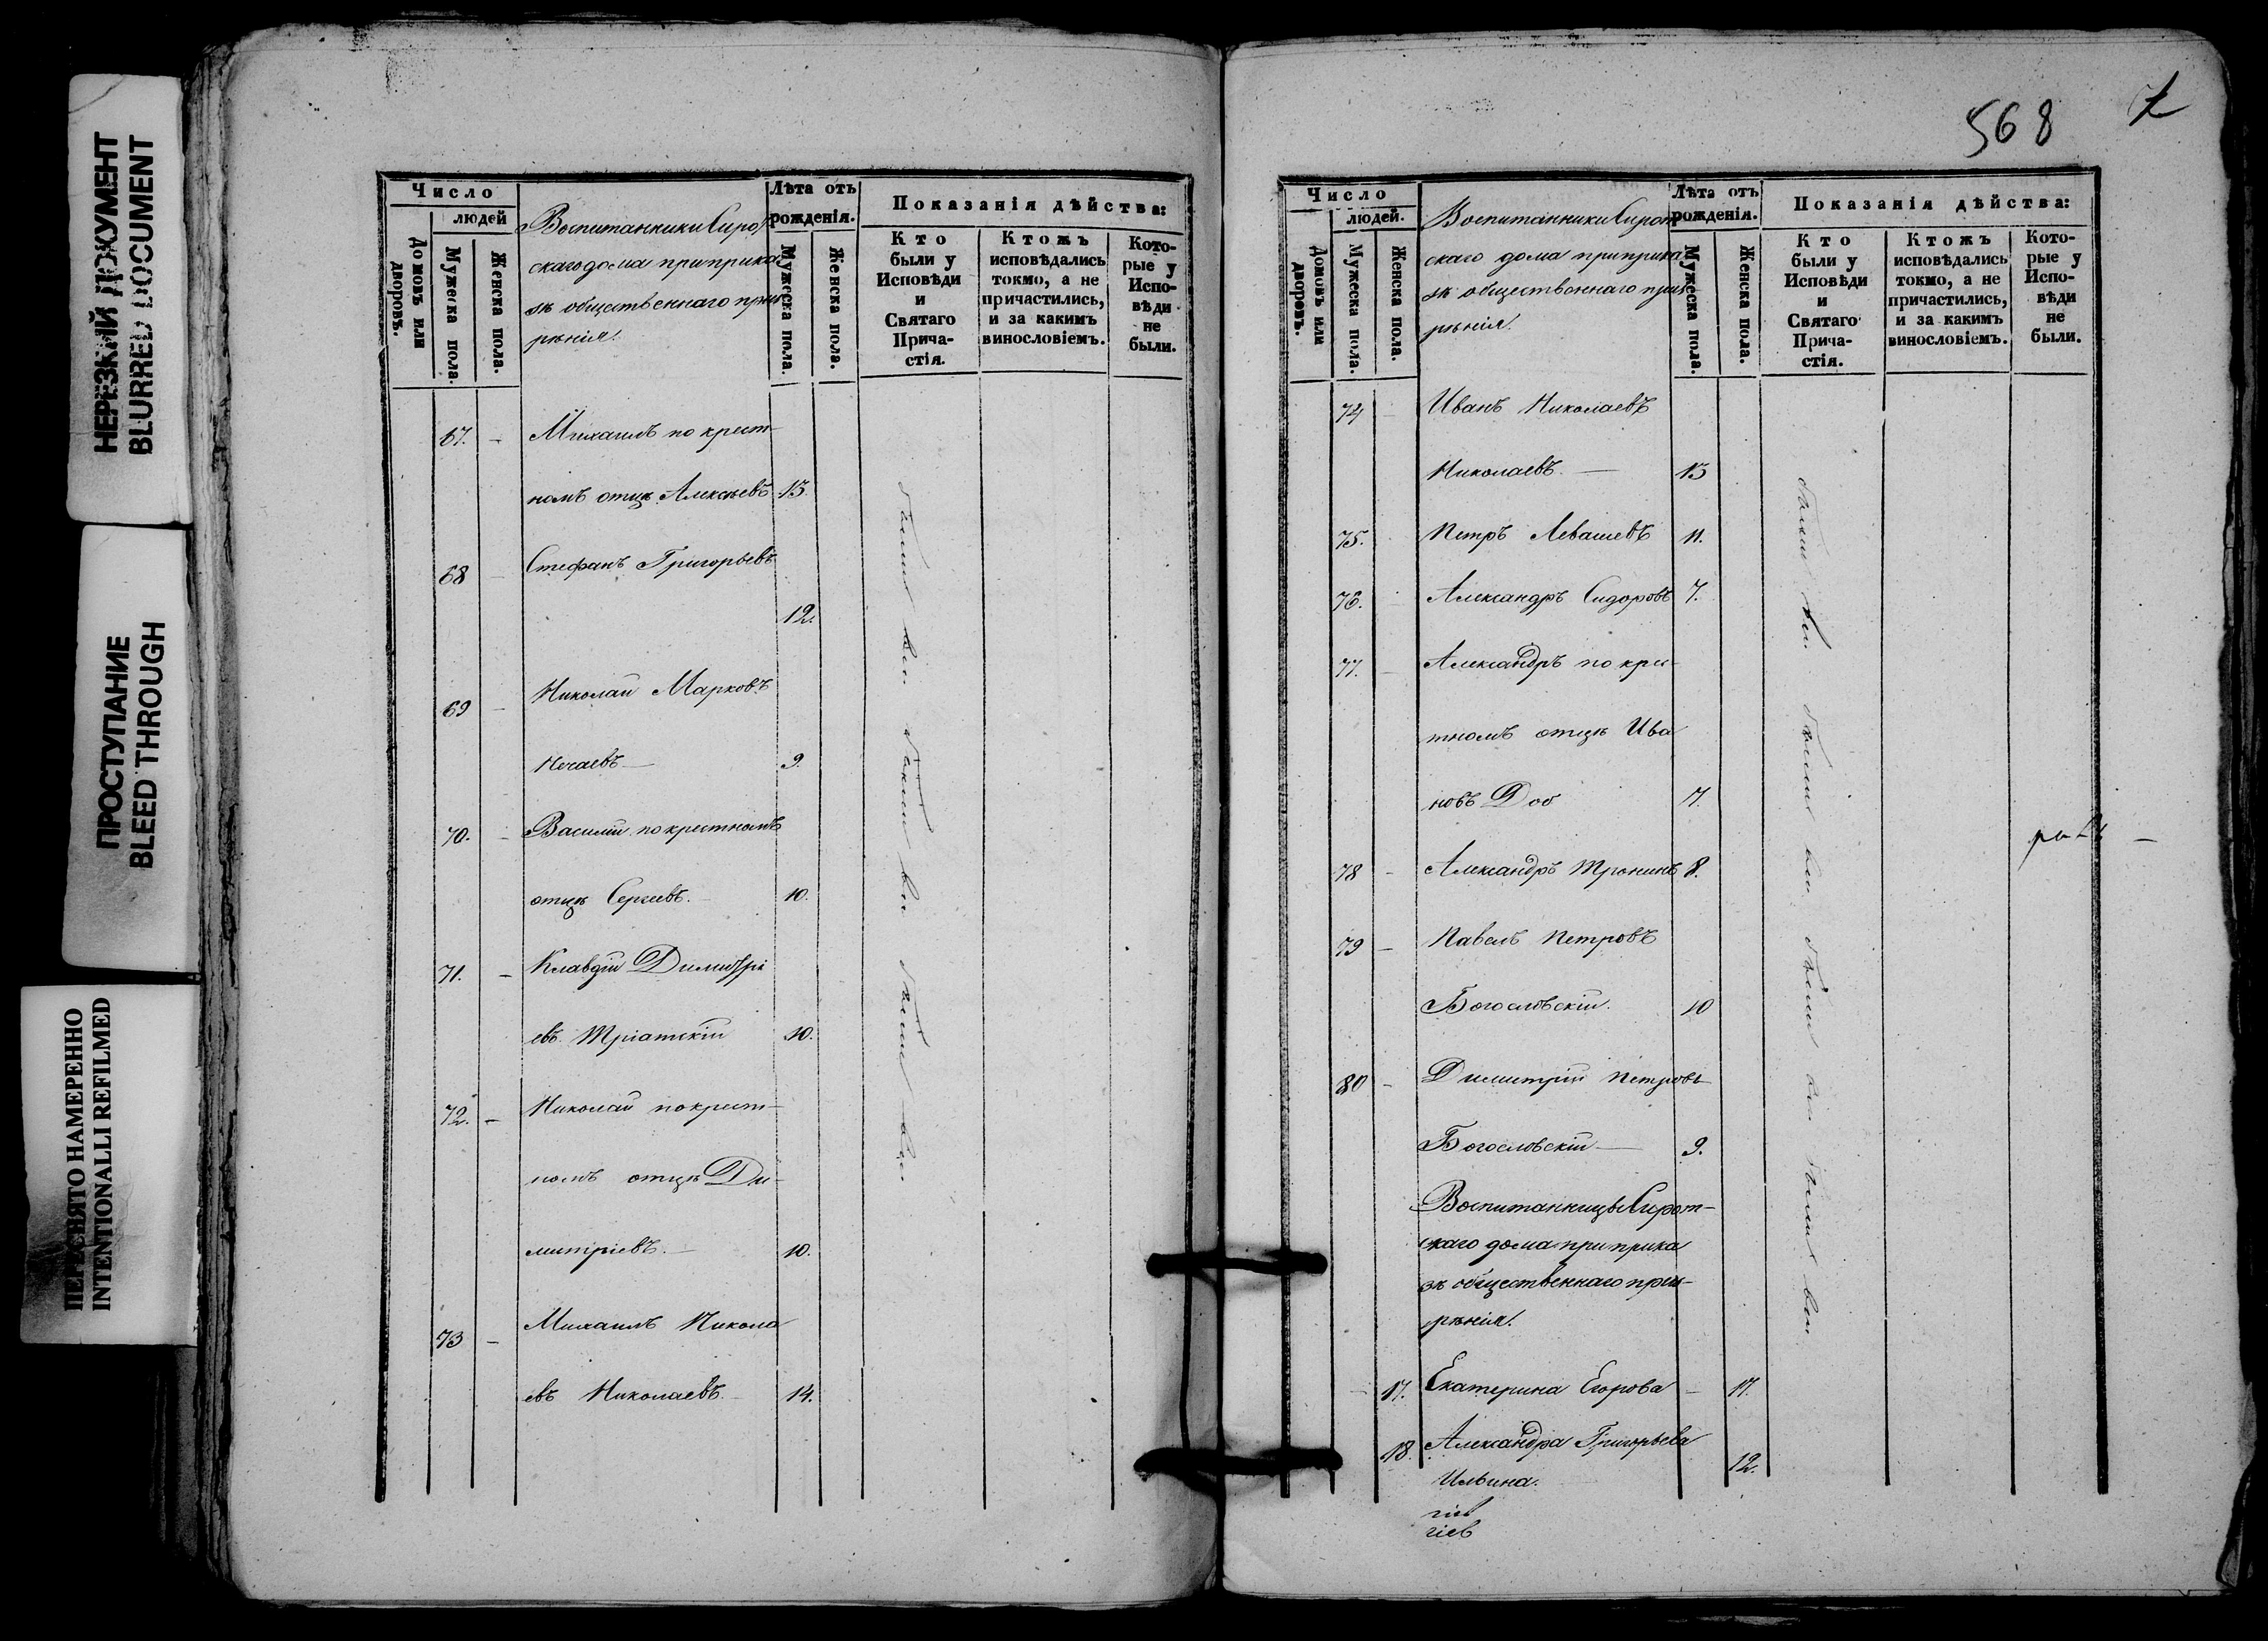 НЕРЕЗКИЙ ДОКУМЕНТ
BLURRED DOCUMENT
ПРОСТУПАНИЕ
BLEED THROUGH
ПЕРЕСНЯТО НАМЕРЕННО
INTENTIONALLI REFILMED
Число
людей
Домовъ или дворовъ.
Мужеска пола.
Женска пола.
Воспитанники Сирот
скаго дома при прика
зѣ общественнаго приз
рѣнія.
Лѣта отъ
рожденія.
Мужеска пола.
Женска пола.
Показанія дѣйства:
Кто
были у
Исповѣди
и
Святаго
Прича-
стія.
Ктожъ
исповѣдались
токмо, а не
причастились,
и за какимъ
винословіемъ.
Кото-
рые у
Испо-
вѣди
не
были.
67. - Михаилъ по крест-
номъ отцѣ Алексѣевъ 13.
68 - Стефанъ Григорьевъ
12.
69 - Николай Марковъ
Нечаевъ — 9.
70. - Василій по крестномъ
отцѣ Сергѣевъ. 10.
71. - Клавдій Димитрі
евъ 10.
72. - Николай по крест-
номъ отцѣ Ди-
митріевъ. — 10.
73 - Михаилъ Никола
евъ Николаевъ 14.
были вси были вси были вси
568 7
Число
людей.
Домовъ или дворовъ.
Мужеска пола.
Женска пола.
Воспитанники Сирот
скаго дома при прика
зѣ общественнаго приз
рѣнія.
Лѣта отъ
рожденія.
Мужеска пола.
Женска пола.
Показанія дѣйства:
Кто
были у
Исповѣди
и
Святаго
Прича-
стія.
Ктожъ
исповѣдались
токмо, а не
причастились,
и за какимъ
винословіемъ.
Кото-
рые у
Испо-
вѣди
не
были.
74 - Иванъ Николаевъ
Николаевъ. — 13
75. Петръ Левашевъ 11.
76. Александръ Сидоровъ 7.
77. - Александръ по кре-
стномъ отцѣ Ива
новъ 7.
78 - Александръ Тронинъ 8.
79 - Павелъ Петровъ
Богословскій. 10
80 - Димитрій Петровъ
Богословскій — 9.
Воспитанницы Сирот-
скаго дома при прика
зѣ общественнаго приз-
рѣнія.
- 17. Екатерина Егорова - 17.
18. Александра Григорьева
Ильина. 12.
гіев
гіев
были вси были вси были вси были вси